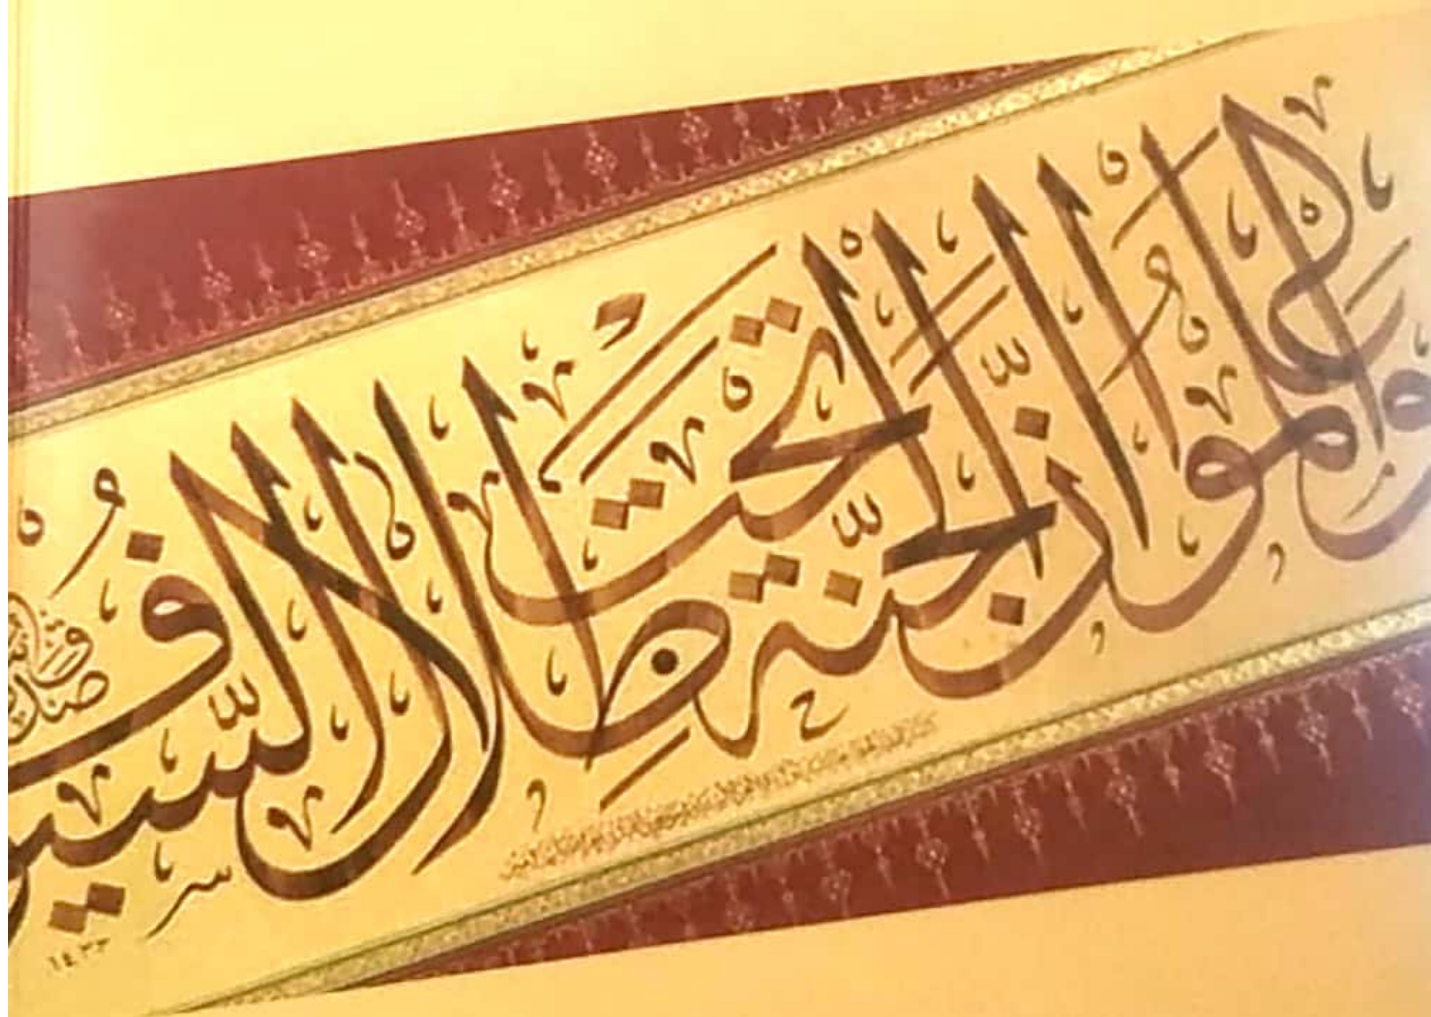 واعلموا أن الجنة تحت ظلال السيوف
صدق
١٤٣٣